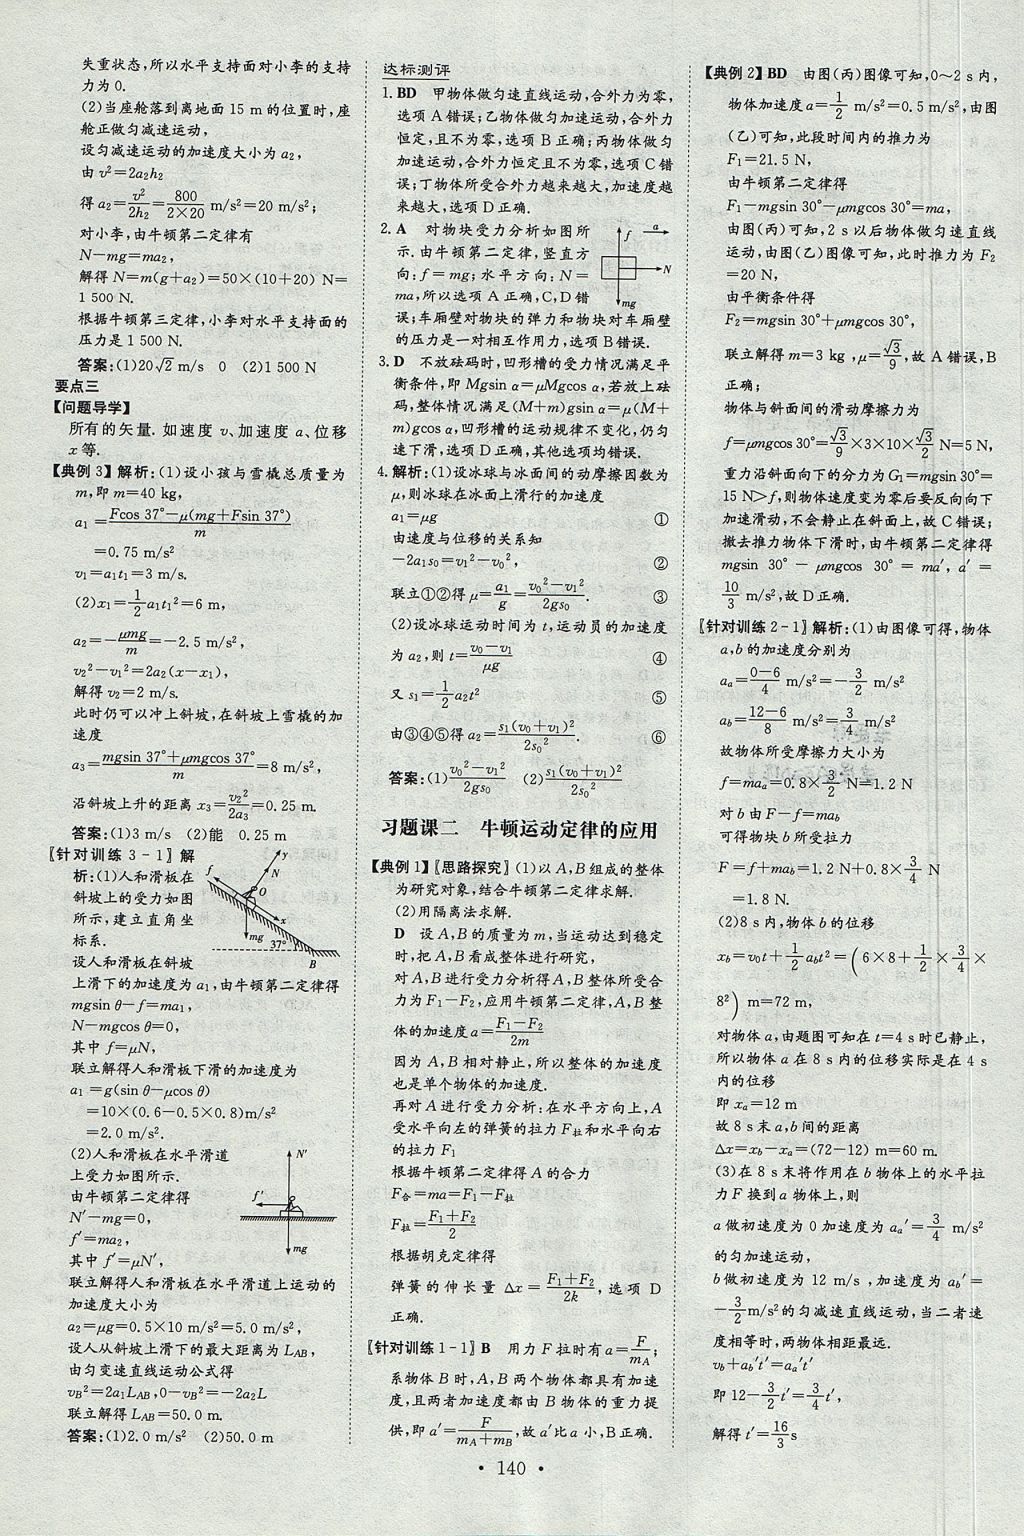 失重状态,所以水平支持面对小李的支持
力为0.
(2)当座舱落到离地面 15 m 的位置时,座
舱正做匀减速运动,
设匀减速运动的加速度大小为 a₂,
由 v²=2a₂h₂
得 a₂=v²/2h₂=800/(2×20) m/s²=20 m/s²;
对小李,由牛顿第二定律有
N-mg=ma₂,
解得 N=m(g+a₂)=50×(10+20) N=
1 500 N.
根据牛顿第三定律,小李对水平支持面的
压力是 1 500 N.
答案:(1)20√2 m/s 0 (2)1 500 N
要点三
【问题导学】
所有的矢量. 如速度 v、加速度 a、位移
x 等.
【典例 3】解析:(1)设小孩与雪橇总质量为
m,即 m=40 kg,
a₁=(Fcos 37°-μ(mg+Fsin 37°))/m
=0.75 m/s²
v₁=a₁t₁=3 m/s.
(2)x₁=1/2 a₁t₁²=6 m,
a₂=-μmg/m=-2.5 m/s²,
v₂²-v₁²=2a₂(x-x₁),
解得 v₂=2 m/s.
此时仍可以冲上斜坡,在斜坡上雪橇的加
速度
a₃=(mgsin 37°+μmgcos 37°)/m=8 m/s²,
沿斜坡上升的距离 x₃=v₂²/2a₃=0.25 m.
答案:(1)3 m/s (2)能 0.25 m
【针对训练 3-1】解
析:(1)人和滑板在
斜坡上的受力如图
所示,建立直角坐
标系.
y
N
f
O
x
mg
37°
B
设人和滑板在斜坡
上滑下的加速度为 a₁,由牛顿第二定律得
mgsin θ-f=ma₁,
N-mgcos θ=0,
其中 f=μN,
联立解得人和滑板下滑的加速度为
a₁=g(sin θ-μcos θ)
=10×(0.6-0.5×0.8)m/s²
=2.0 m/s².
(2)人和滑板在水平滑道
上受力如图所示.
由牛顿第二定律得
N′-mg=0,
f′=ma₂,
其中 f′=μN′,
N′
f′
mg
联立解得人和滑板在水平滑道上运动的
加速度大小为
a₂=μg=0.5×10 m/s²=5.0 m/s²,
设人从斜坡上滑下的最大距离为 L_AB,
由匀变速直线运动公式得
v_B²=2a₁L_AB,0-v_B²=-2a₂L
联立解得 L_AB=50.0 m.
答案:(1)2.0 m/s² (2)50.0 m
达标测评
1. BD 甲物体做匀速直线运动,合外力为零,
选项 A 错误;乙物体做匀加速运动,合外力
恒定,且不为零,选项 B 正确;丙物体做匀减
速运动,合外力恒定且不为零,选项 C 错
误;丁物体所受合外力越来越大,加速度越
来越大,选项 D 正确.
2. A 对物块受力分析如图所
示. 由牛顿第二定律,竖直方
向:f=mg;水平方向:N=
ma,所以选项 A 正确,C,D 错
误;车厢壁对物块的弹力和物块对车厢壁
的压力是一对相互作用力,选项 B 错误.
f
a
N
mg
3. D 不放砝码时,凹形槽的受力情况满足平
衡条件,即 Mgsin α=μMgcos α,若放上砝
码,整体情况满足(M+m)gsin α=μ(M+
m)gcos α,凹形槽的运动规律不变化,仍匀
速下滑,选项 D 正确,其他选项均错误.
4. 解析:(1)设冰球与冰面间的动摩擦因数为
μ,则冰球在冰面上滑行的加速度
a₁=μg ①
由速度与位移的关系知
-2a₁s₀=v₁²-v₀², ②
联立①②得 μ=a₁/g=(v₀²-v₁²)/2gs₀. ③
(2)设冰球运动时间为 t,运动员的加速度
为 a₂,则 t=(v₀-v₁)/μg ④
又 s₁=1/2 a₂t² ⑤
由③④⑤得 a₂=s₁(v₀+v₁)²/2s₀². ⑥
答案:(1)(v₀²-v₁²)/2gs₀ (2)s₁(v₀+v₁)²/2s₀²
习题课二 牛顿运动定律的应用
【典例 1】【思路探究】(1)以 A,B 组成的整体
为研究对象,结合牛顿第二定律求解.
(2)用隔离法求解.
D 设 A,B 的质量为 m,当运动达到稳定
时,把 A,B 看成整体进行研究,
对 A,B 进行受力分析得 A,B 整体所受合
力为 F₁-F₂,应用牛顿第二定律,A,B 整
体的加速度 a=(F₁-F₂)/2m
因为 A,B 相对静止,所以整体的加速度
也是单个物体的加速度.
再对 A 进行受力分析:在水平方向上,A
受水平向左的弹簧的拉力 F拉和水平向右
的拉力 F₁
根据牛顿第二定律得 A 的合力
F合=ma=F₁-F拉
F拉=(F₁+F₂)/2
根据胡克定律得
弹簧的伸长量 Δx=(F₁+F₂)/2k,选项 D
正确.
【针对训练 1-1】B 用力 F 拉时有 a=F/m_A;
系物体 B 时,A,B 两个物体都具有加速
度,且两者加速度都由 B 物体的重力提
供,即 a′=F/(m_A+m_B),故 a′比 a 小,B 正确.
【典例 2】BD 由图(丙)图像可知,0~2 s 内,
物体加速度 a=1/2 m/s²=0.5 m/s²,由图
(乙)可知,此段时间内的推力为
F₁=21.5 N,
由牛顿第二定律得
F₁-mgsin 30°-μmgcos 30°=ma,
由图(丙)可知,2 s 以后物体做匀速直线
运动,由图(乙)图像可知,此时推力为 F₂
=20 N,
由平衡条件得
F₂=mgsin 30°+μmgcos 30°,
联立解得 m=3 kg,μ=√3/9,故 A 错误,B
正确;
物体与斜面间的滑动摩擦力为
f=μmgcos 30°=√3/9×3×10×√3/2 N=5 N,
重力沿斜面向下的分力为 G₁=mgsin 30°=
15 N>f,则物体速度变为零后要反向向下
加速滑动,不会静止在斜面上,故 C 错误;
撤去推力物体下滑时,由牛顿第二定律得
mgsin 30° - μmgcos 30° = ma′, a′ =
10/3 m/s²,故 D 正确.
【针对训练 2-1】解析:(1)由图像可得,物体
a,b 的加速度分别为
a_a=(0-6)/4 m/s²=-3/2 m/s²
a_b=(12-6)/8 m/s²=3/4 m/s²
故物体所受摩擦力大小为
f=ma_a=0.8×3/2 N=1.2 N
对 b 由 F-f=ma_b
可得物块 b 所受拉力
F=f+ma_b=1.2 N+0.8×3/4 N
=1.8 N.
(2)8 s 内,物体 b 的位移
x_b=v₀t+1/2 a_bt²=(6×8+1/2×3/4×
8²) m=72 m,
对物体 a,由题图可知在 t=4 s 时已静止,
所以物体 a 在 8 s 内的位移实际是在 4 s
内的位移
即 x_a=12 m
故 8 s 末 a,b 间的距离
Δx=x_b-x_a=(72-12) m=60 m.
(3)在 8 s 末将作用在 b 物体上的水平拉
力 F 换到 a 物体上,则
a 做初速度为 0 加速度为 a_a′=3/4 m/s²
的匀加速运动,
b 做初速度为 12 m/s,加速度为 a_b′=
-3/2 m/s²的匀减速直线运动,当二者速
度相等时,两物体相距最远.
v_b+a_b′t′=a_a′t′
即 12-3/2 t′=3/4 t′,
解得 t′=16/3 s
• 140 •